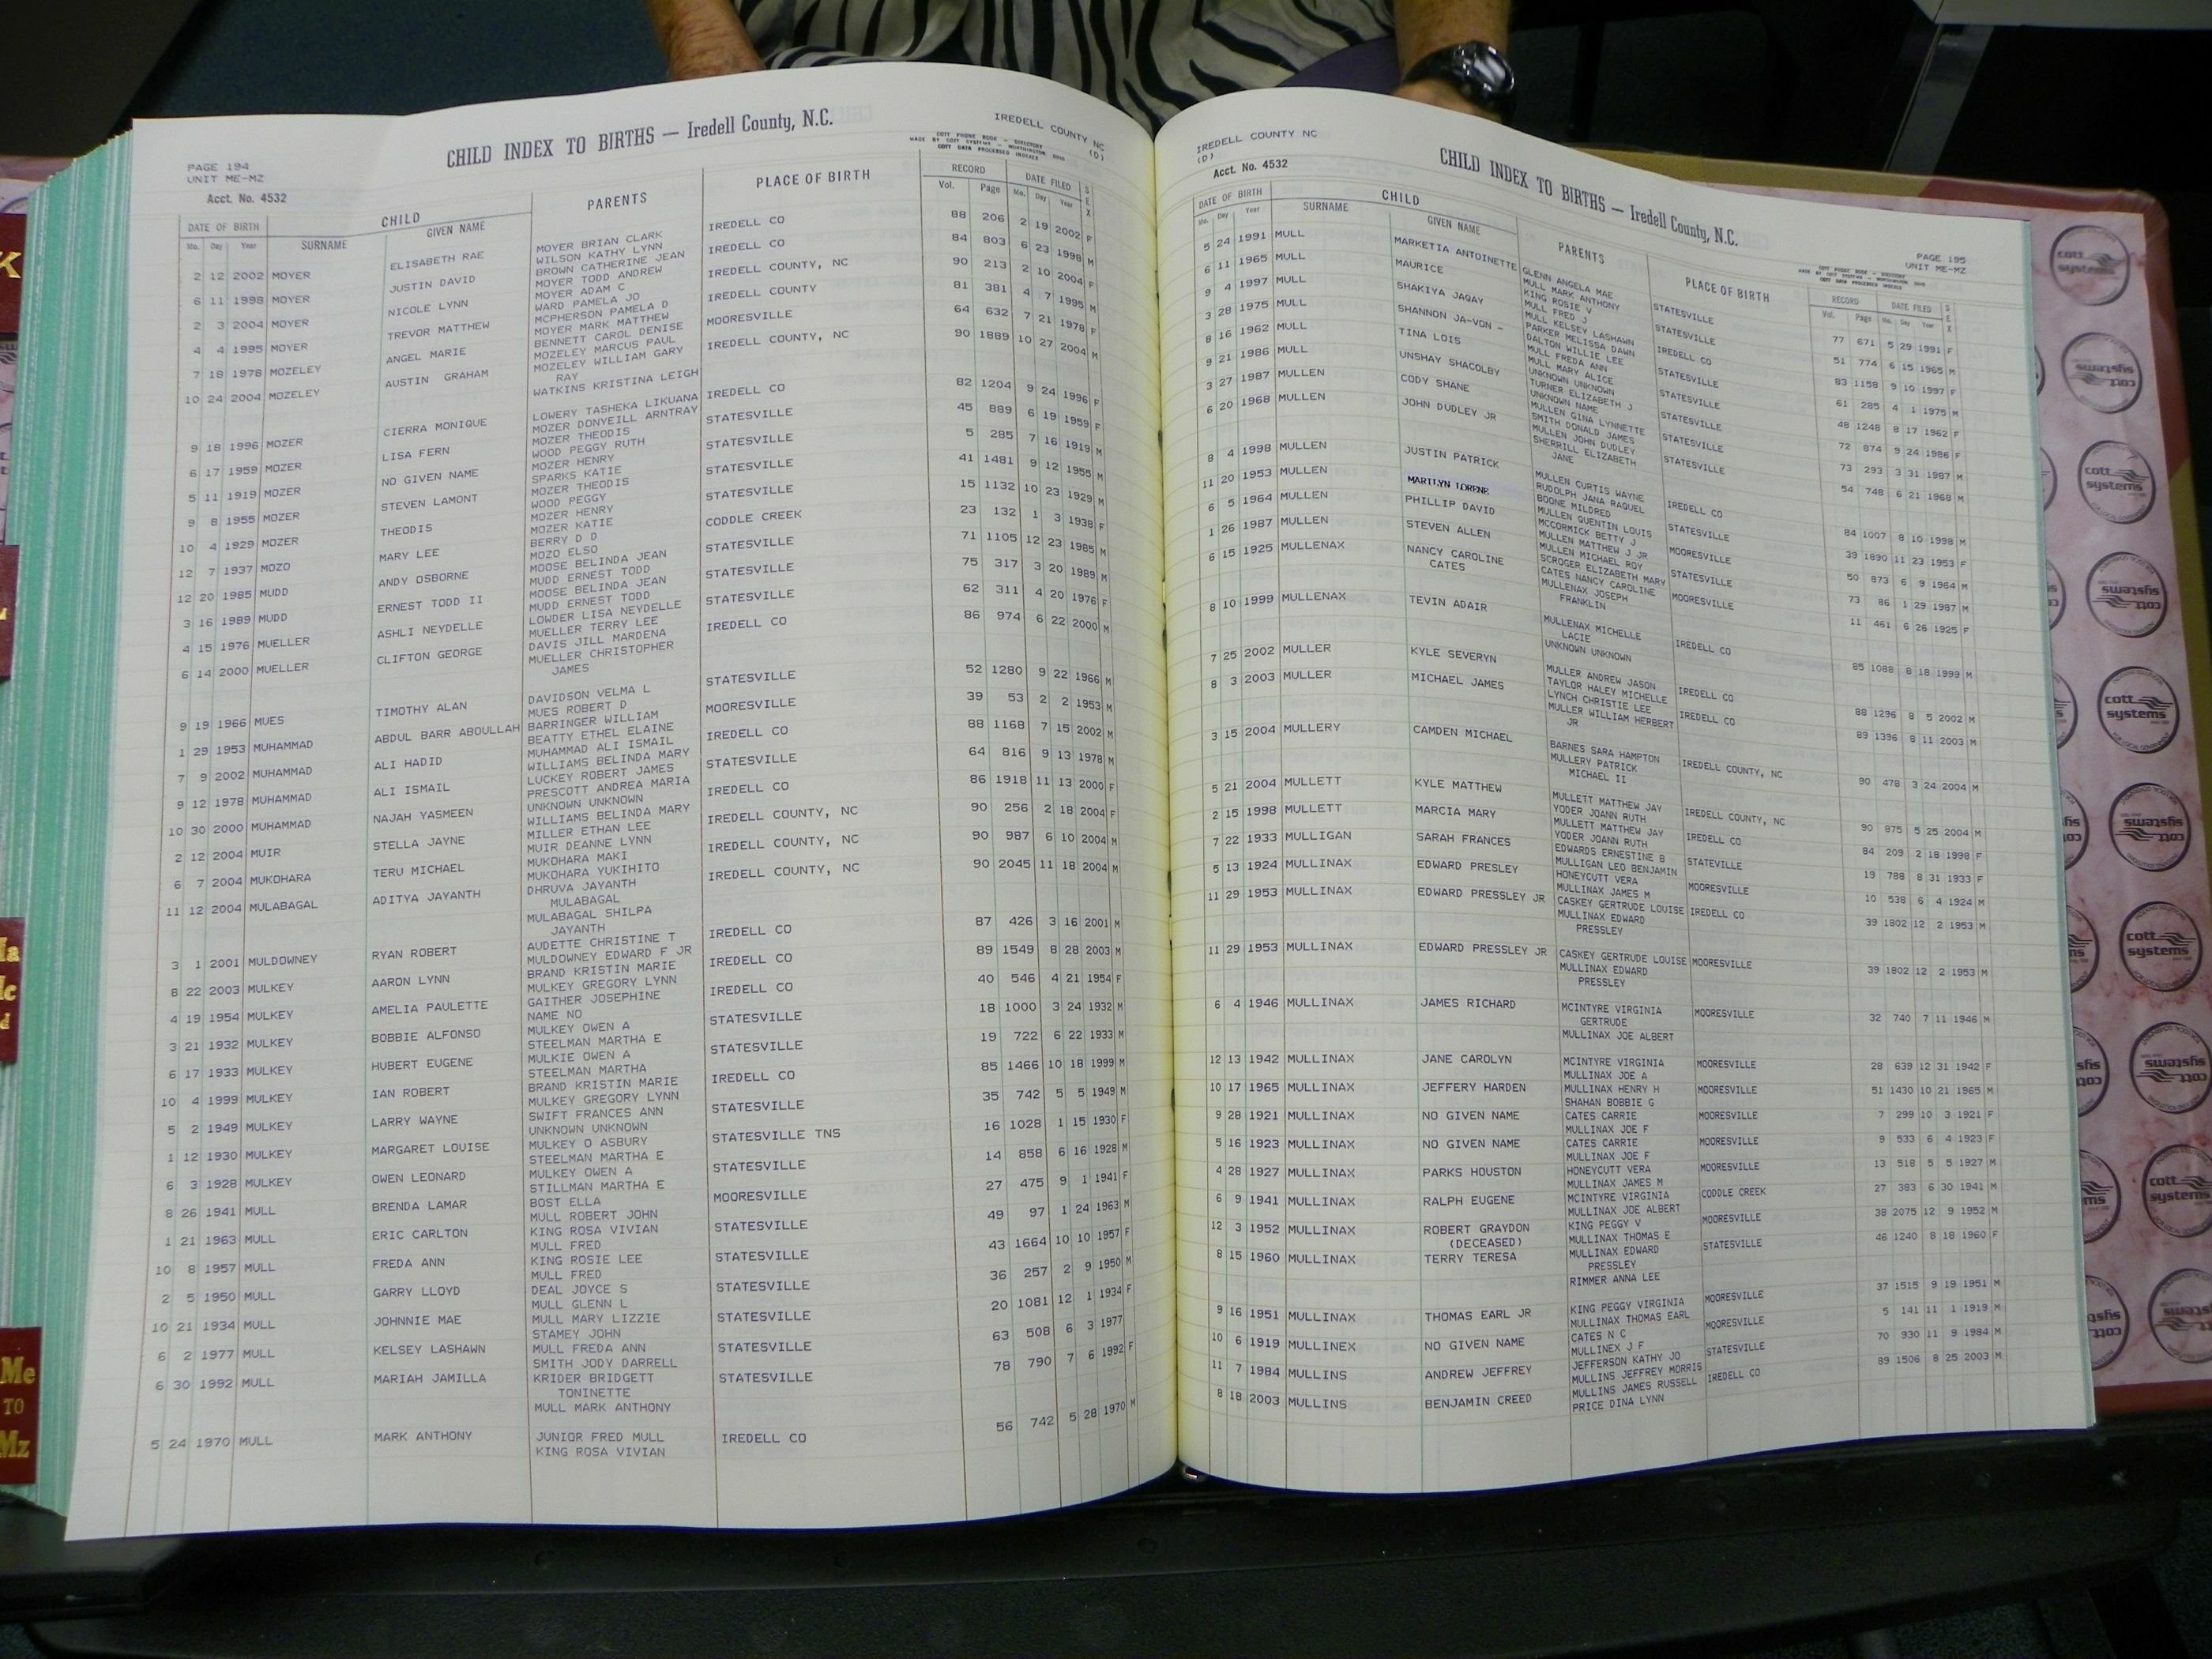 PAGE 194
UNIT ME-MZ
Acct. No. 4532
CHILD INDEX TO BIRTHS — Iredell County, N.C.
IREDELL COUNTY NC
(D)
COTT PHONE BOOK - DIRECTORY
MADE BY COTT SYSTEMS - WORTHINGTON OHIO
COTT DATA PROCESSED INDEXES
DATE OF BIRTH CHILD PARENTS PLACE OF BIRTH RECORD DATE FILED SEX
Mo. Day Year SURNAME GIVEN NAME Vol. Page Mo. Day Year
2 12 2002 MOYER ELISABETH RAE MOYER BRIAN CLARK IREDELL CO 88 206 2 19 2002 F
WILSON KATHY LYNN
6 11 1998 MOYER JUSTIN DAVID BROWN CATHERINE JEAN IREDELL CO 84 803 6 23 1998 M
MOYER TODD ANDREW
2 3 2004 MOYER NICOLE LYNN MOYER ADAM C IREDELL COUNTY, NC 90 213 2 10 2004 F
WARD PAMELA JO
4 4 1995 MOYER TREVOR MATTHEW MCPHERSON PAMELA D IREDELL COUNTY 81 381 4 7 1995 M
MOYER MARK MATTHEW
7 18 1978 MOZELEY ANGEL MARIE BENNETT CAROL DENISE MOORESVILLE 64 632 7 21 1978 F
MOZELEY MARCUS PAUL
10 24 2004 MOZELEY AUSTIN GRAHAM MOZELEY WILLIAM GARY IREDELL COUNTY, NC 90 1889 10 27 2004 M
RAY
WATKINS KRISTINA LEIGH
9 18 1996 MOZER CIERRA MONIQUE LOWERY TASHEKA LIKUANA IREDELL CO 82 1204 9 24 1996 F
MOZER DONYEILL ARNTRAY
6 17 1959 MOZER LISA FERN MOZER THEODIS STATESVILLE 45 889 6 19 1959 F
WOOD PEGGY RUTH
5 11 1919 MOZER NO GIVEN NAME MOZER HENRY STATESVILLE 5 285 7 16 1919 M
SPARKS KATIE
9 8 1955 MOZER STEVEN LAMONT MOZER THEODIS STATESVILLE 41 1481 9 12 1955 M
WOOD PEGGY
10 4 1929 MOZER THEODIS MOZER HENRY STATESVILLE 15 1132 10 23 1929 M
MOZER KATIE
12 7 1937 MOZO MARY LEE BERRY D D CODDLE CREEK 23 132 1 3 1938 F
MOZO ELSO
12 20 1985 MUDD ANDY OSBORNE MOOSE BELINDA JEAN STATESVILLE 71 1105 12 23 1985 M
MUDD ERNEST TODD
3 16 1989 MUDD ERNEST TODD II MOOSE BELINDA JEAN STATESVILLE 75 317 3 20 1989 M
MUDD ERNEST TODD
4 15 1976 MUELLER ASHLI NEYDELLE LOWDER LISA NEYDELLE STATESVILLE 62 311 4 20 1976 F
MUELLER TERRY LEE
6 14 2000 MUELLER CLIFTON GEORGE DAVIS JILL MARDENA IREDELL CO 86 974 6 22 2000 M
MUELLER CHRISTOPHER
JAMES
9 19 1966 MUES TIMOTHY ALAN DAVIDSON VELMA L STATESVILLE 52 1280 9 22 1966 M
MUES ROBERT D
1 29 1953 MUHAMMAD ABDUL BARR ABOULLAH BARRINGER WILLIAM MOORESVILLE 39 53 2 2 1953 M
BEATTY ETHEL ELAINE
7 9 2002 MUHAMMAD ALI HADID MUHAMMAD ALI ISMAIL IREDELL CO 88 1168 7 15 2002 M
WILLIAMS BELINDA MARY
9 12 1978 MUHAMMAD ALI ISMAIL LUCKEY ROBERT JAMES STATESVILLE 64 816 9 13 1978 M
PRESCOTT ANDREA MARIA
10 30 2000 MUHAMMAD NAJAH YASMEEN UNKNOWN UNKNOWN IREDELL CO 86 1918 11 13 2000 F
WILLIAMS BELINDA MARY
2 12 2004 MUIR STELLA JAYNE MILLER ETHAN LEE IREDELL COUNTY, NC 90 256 2 18 2004 F
MUIR DEANNE LYNN
6 7 2004 MUKOHARA TERU MICHAEL MUKOHARA MAKI IREDELL COUNTY, NC 90 987 6 10 2004 M
MUKOHARA YUKIHITO
11 12 2004 MULABAGAL ADITYA JAYANTH DHRUVA JAYANTH IREDELL COUNTY, NC 90 2045 11 18 2004 M
MULABAGAL
MULABAGAL SHILPA
JAYANTH
3 1 2001 MULDOWNEY RYAN ROBERT AUDETTE CHRISTINE T IREDELL CO 87 426 3 16 2001 M
MULDOWNEY EDWARD F JR
8 22 2003 MULKEY AARON LYNN BRAND KRISTIN MARIE IREDELL CO 89 1549 8 28 2003 M
MULKEY GREGORY LYNN
4 19 1954 MULKEY AMELIA PAULETTE GAITHER JOSEPHINE IREDELL CO 40 546 4 21 1954 F
NAME NO
3 21 1932 MULKEY BOBBIE ALFONSO MULKEY OWEN A STATESVILLE 18 1000 3 24 1932 M
STEELMAN MARTHA E
6 17 1933 MULKEY HUBERT EUGENE MULKIE OWEN A STATESVILLE 19 722 6 22 1933 M
STEELMAN MARTHA
10 4 1999 MULKEY IAN ROBERT BRAND KRISTIN MARIE IREDELL CO 85 1466 10 18 1999 M
MULKEY GREGORY LYNN
5 2 1949 MULKEY LARRY WAYNE SWIFT FRANCES ANN STATESVILLE 35 742 5 5 1949 M
UNKNOWN UNKNOWN
1 12 1930 MULKEY MARGARET LOUISE MULKEY O ASBURY STATESVILLE TNS 16 1028 1 15 1930 F
STEELMAN MARTHA E
6 3 1928 MULKEY OWEN LEONARD MULKEY OWEN A STATESVILLE 14 858 6 16 1928 M
STILLMAN MARTHA E
8 26 1941 MULL BRENDA LAMAR BOST ELLA MOORESVILLE 27 475 9 1 1941 F
MULL ROBERT JOHN
1 21 1963 MULL ERIC CARLTON KING ROSA VIVIAN STATESVILLE 49 97 1 24 1963 M
MULL FRED
10 8 1957 MULL FREDA ANN KING ROSIE LEE STATESVILLE 43 1664 10 10 1957 F
MULL FRED
2 5 1950 MULL GARRY LLOYD DEAL JOYCE S STATESVILLE 36 257 2 9 1950 M
MULL GLENN L
10 21 1934 MULL JOHNNIE MAE MULL MARY LIZZIE STATESVILLE 20 1081 12 1 1934 F
STAMEY JOHN
6 2 1977 MULL KELSEY LASHAWN MULL FREDA ANN STATESVILLE 63 508 6 3 1977
SMITH JODY DARRELL
6 30 1992 MULL MARIAH JAMILLA KRIDER BRIDGETT STATESVILLE 78 790 7 6 1992 F
TONINETTE
MULL MARK ANTHONY
5 24 1970 MULL MARK ANTHONY JUNIOR FRED MULL IREDELL CO 56 742 5 28 1970 M
KING ROSA VIVIAN
IREDELL COUNTY NC
(D)
Acct. No. 4532
CHILD INDEX TO BIRTHS — Iredell County, N.C.
PAGE 195
UNIT ME-MZ
COTT PHONE BOOK - DIRECTORY
MADE BY COTT SYSTEMS - WORTHINGTON OHIO
COTT DATA PROCESSED INDEXES
DATE OF BIRTH CHILD PARENTS PLACE OF BIRTH RECORD DATE FILED SEX
Mo. Day Year SURNAME GIVEN NAME Vol. Page Mo. Day Year
5 24 1991 MULL MARKETIA ANTOINETTE GLENN ANGELA MAE STATESVILLE 77 671 5 29 1991 F
MULL MARK ANTHONY
6 11 1965 MULL MAURICE KING ROSIE V STATESVILLE 51 774 6 15 1965 M
MULL FRED J
9 4 1997 MULL SHAKIYA JAQAY MULL KELSEY LASHAWN IREDELL CO 83 1158 9 10 1997 F
PARKER MELISSA DAWN
3 28 1975 MULL SHANNON JA-VON - DALTON WILLIE LEE STATESVILLE 61 285 4 1 1975 M
MULL FREDA ANN
8 16 1962 MULL TINA LOIS MULL MARY ALICE STATESVILLE 48 1248 8 17 1962 F
UNKNOWN UNKNOWN
9 21 1986 MULL UNSHAY SHACOLBY TURNER ELIZABETH J STATESVILLE 72 874 9 24 1986 F
UNKNOWN NAME
3 27 1987 MULLEN CODY SHANE MULLEN GINA LYNNETTE STATESVILLE 73 293 3 31 1987 M
SMITH DONALD JAMES
6 20 1968 MULLEN JOHN DUDLEY JR MULLEN JOHN DUDLEY 54 748 6 21 1968 M
SHERRILL ELIZABETH
JANE
8 4 1998 MULLEN JUSTIN PATRICK MULLEN CURTIS WAYNE IREDELL CO 84 1007 8 10 1998 M
RUDOLPH JANA RAQUEL
11 20 1953 MULLEN MARILYN LORENE BOONE MILDRED STATESVILLE 39 1890 11 23 1953 F
MULLEN QUENTIN LOUIS
6 5 1964 MULLEN PHILLIP DAVID MCCORMICK BETTY J MOORESVILLE 50 873 6 9 1964 M
MULLEN MATTHEW J JR
1 26 1987 MULLEN STEVEN ALLEN MULLEN MICHAEL ROY STATESVILLE 73 86 1 29 1987 M
SCROGER ELIZABETH MARY
6 15 1925 MULLENAX NANCY CAROLINE CATES NANCY CAROLINE MOORESVILLE 11 461 6 26 1925 F
CATES MULLENAX JOSEPH
FRANKLIN
8 10 1999 MULLENAX TEVIN ADAIR MULLENAX MICHELLE IREDELL CO 85 1088 8 18 1999 M
LACIE
UNKNOWN UNKNOWN
7 25 2002 MULLER KYLE SEVERYN MULLER ANDREW JASON IREDELL CO 88 1296 8 5 2002 M
TAYLOR HALEY MICHELLE
8 3 2003 MULLER MICHAEL JAMES LYNCH CHRISTIE LEE IREDELL CO 89 1396 8 11 2003 M
MULLER WILLIAM HERBERT
JR
3 15 2004 MULLERY CAMDEN MICHAEL BARNES SARA HAMPTON IREDELL COUNTY, NC 90 478 3 24 2004 M
MULLERY PATRICK
MICHAEL II
5 21 2004 MULLETT KYLE MATTHEW MULLETT MATTHEW JAY IREDELL COUNTY, NC 90 875 5 25 2004 M
YODER JOANN RUTH
2 15 1998 MULLETT MARCIA MARY MULLETT MATTHEW JAY IREDELL CO 84 209 2 18 1998 F
YODER JOANN RUTH
7 22 1933 MULLIGAN SARAH FRANCES EDWARDS ERNESTINE B STATEVILLE 19 788 8 31 1933 F
MULLIGAN LEO BENJAMIN
5 13 1924 MULLINAX EDWARD PRESLEY HONEYCUTT VERA MOORESVILLE 10 538 6 4 1924 M
MULLINAX JAMES M
11 29 1953 MULLINAX EDWARD PRESSLEY JR CASKEY GERTRUDE LOUISE IREDELL CO 39 1802 12 2 1953 M
MULLINAX EDWARD
PRESSLEY
11 29 1953 MULLINAX EDWARD PRESSLEY JR CASKEY GERTRUDE LOUISE MOORESVILLE 39 1802 12 2 1953 M
MULLINAX EDWARD
PRESSLEY
6 4 1946 MULLINAX JAMES RICHARD MCINTYRE VIRGINIA MOORESVILLE 32 740 7 11 1946 M
GERTRUDE
MULLINAX JOE ALBERT
12 13 1942 MULLINAX JANE CAROLYN MCINTYRE VIRGINIA MOORESVILLE 28 639 12 31 1942 F
MULLINAX JOE A
10 17 1965 MULLINAX JEFFERY HARDEN MULLINAX HENRY H MOORESVILLE 51 1430 10 21 1965 M
SHAHAN BOBBIE G
9 28 1921 MULLINAX NO GIVEN NAME CATES CARRIE MOORESVILLE 7 299 10 3 1921 F
MULLINAX JOE F
5 16 1923 MULLINAX NO GIVEN NAME CATES CARRIE MOORESVILLE 9 533 6 4 1923 F
MULLINAX JOE F
4 28 1927 MULLINAX PARKS HOUSTON HONEYCUTT VERA MOORESVILLE 13 518 5 5 1927 M
MULLINAX JAMES M
6 9 1941 MULLINAX RALPH EUGENE MCINTYRE VIRGINIA CODDLE CREEK 27 383 6 30 1941 M
MULLINAX JOE ALBERT
12 3 1952 MULLINAX ROBERT GRAYDON KING PEGGY V MOORESVILLE 38 2075 12 9 1952 M
(DECEASED) MULLINAX THOMAS E
8 15 1960 MULLINAX TERRY TERESA MULLINAX EDWARD STATESVILLE 46 1240 8 18 1960 F
PRESSLEY
RIMMER ANNA LEE
9 16 1951 MULLINAX THOMAS EARL JR KING PEGGY VIRGINIA MOORESVILLE 37 1515 9 19 1951 M
MULLINAX THOMAS EARL
10 6 1919 MULLINEX NO GIVEN NAME CATES N C MOORESVILLE 5 141 11 1 1919 M
MULLINEX J F
11 7 1984 MULLINS ANDREW JEFFREY JEFFERSON KATHY JO STATESVILLE 70 930 11 9 1984 M
MULLINS JEFFREY MORRIS
8 18 2003 MULLINS BENJAMIN CREED MULLINS JAMES RUSSELL IREDELL CO 89 1506 8 25 2003 M
PRICE DINA LYNN
Me
TO
Mz
cott
systems